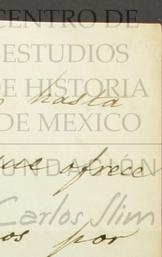 CENTRO DE
ESTUDIOS
DE HISTORIA
hasta
DE MEXICO
que ofrece
FUNDACIÓN
Carlos Slim
por